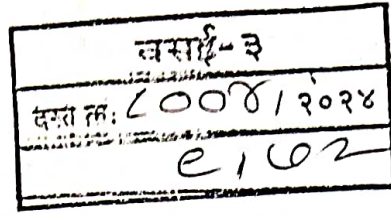 वसई-३
दस्त क्र. ८००४/२०२४
९/७२